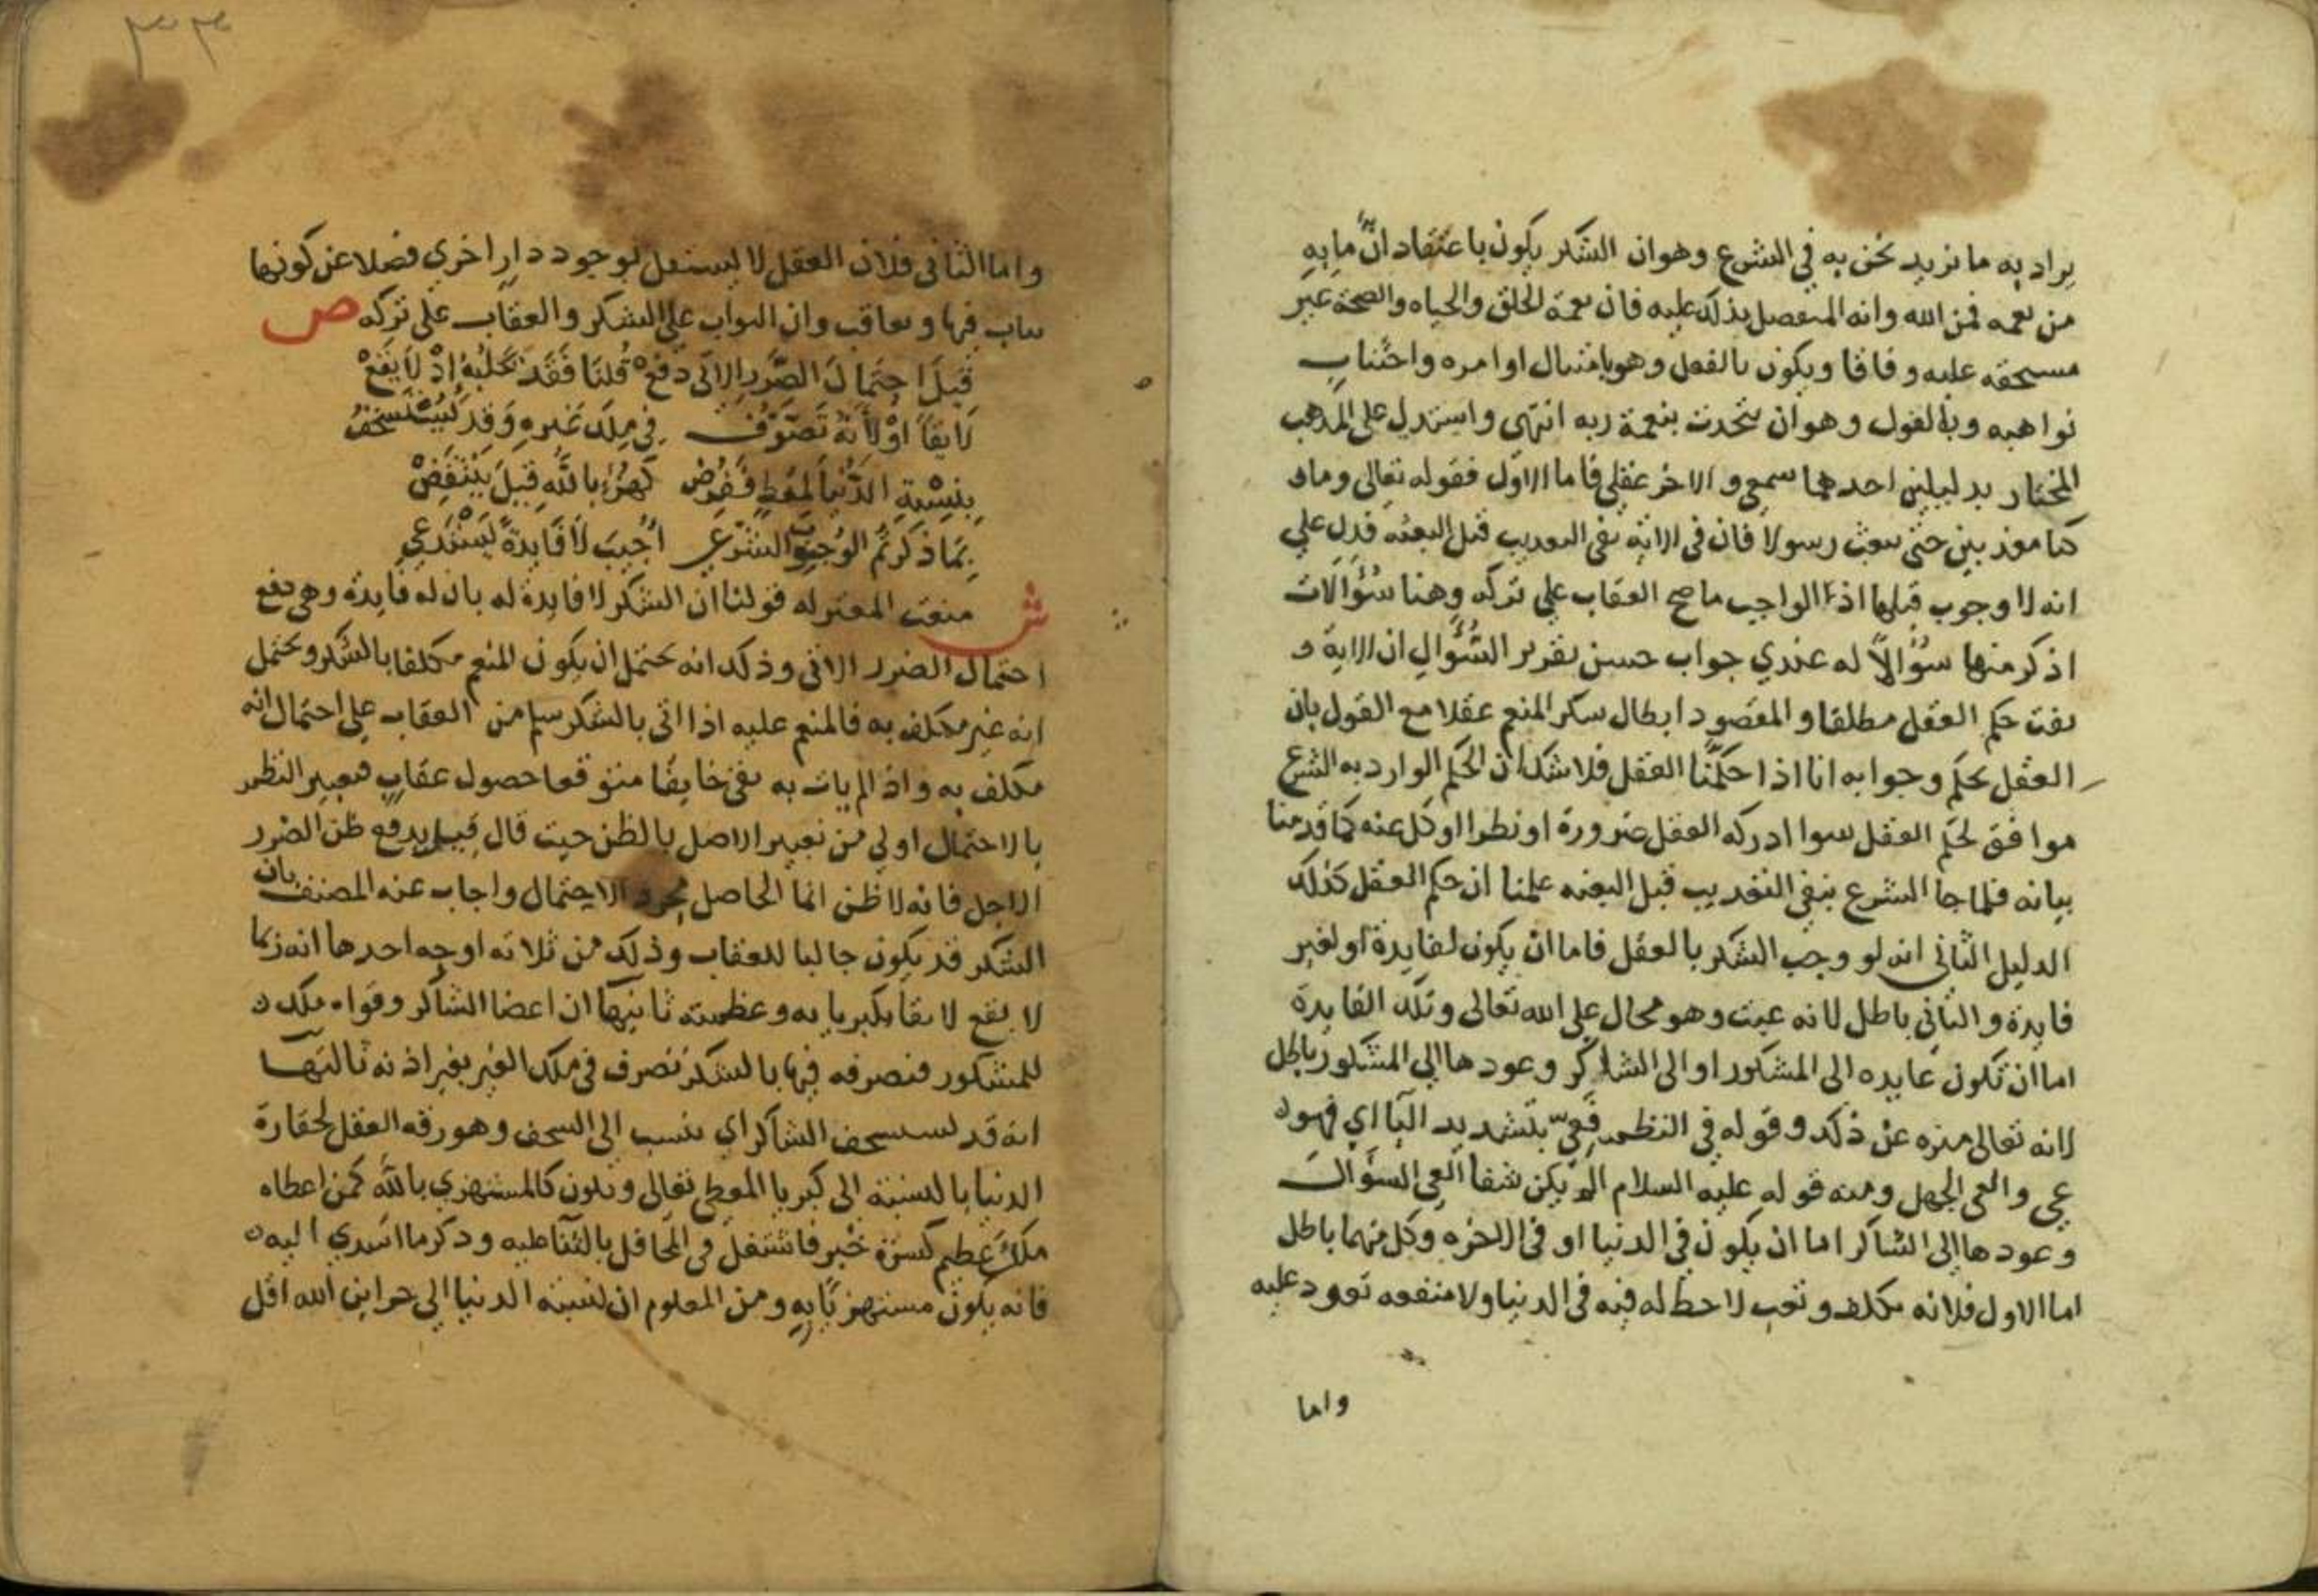 يراد به ما نريد نحن به في الشرع وهو ان الشكر يكون باعتقاد انّ ما به
من نعمه فمن الله وانه المتفضل بذلك عليه فان نعمة الخلق والحياه والصحة غير
مستحقه عليه وفاقا ويكون بالفعل وهو بامتثال اوامره واجتناب
نواهيه وبالقول وهو ان يتحدث بنعمة ربه انتهى واستدل على المذهب
المختار بدليلين احدهما سمعي والاخر عقلي فاما الاول فقوله تعالى وما
كنا معذبين حتى نبعث رسولا فان في الاية نفى التعذيب قبل البعثه فدل علي
انه لا وجوب قبلها اذ الواجب ما صح العقاب علي تركه وهنا سُؤالات
اذكر منها سؤالاً له عندي جواب حسن تقرير السُّؤال ان الاية
نفت حكم العقل مطلقا والمقصود ابطال شكر المنعم عقلا مع القول بان
العقل يحكم وجوابه انا اذا حكّمنا العقل فلا شك ان الحكم الوارد به الشرع
موافق لحكم العقل سوا ادركه العقل ضرورة او نظرا او كل عنه كما قدمنا
بيانه فلما جا الشرع بنفي التعذيب قبل البعثه علمنا ان حكم العقل كذلك
الدليل الثاني انه لو وجب الشكر بالعقل فاما ان يكون لفايدة او لغير
فايدة والثاني باطل لانه عبث وهو محال على الله تعالى وتلك الفايدة
اما ان تكون عايده الى المشكور او الى الشاكر وعودها الي المشكور باطل
لانه تعالى منزه عن ذلك وقوله في النظم فَعِيّ بتشديد اليآ اي فهو
عي والعي الجهل ومنه قوله عليه السلام الم يكن شفا العي السؤال
وعودها الي الشاكر اما ان يكون في الدنيا او في الاخره وكل منهما باطل
اما الاول فلانه تكلف وتعب لا حظ له فيه في الدنيا ولا منفعه تعود عليه
واما
٣٣
واما الثاني فلان العقل لا يستقل بوجود دار اخري فضلا عن كونها
يثاب فيها ويعاقب وان الثواب على الشكر والعقاب على تركه ص
قِيلَ احتِمالَ الضَّرَرِ الاتى دَفَعْ قُلنَا فَقَد يَجْلبُهُ اِذْ لا يَقَعْ
لَايِقاً اوْ لأنَّهُ تَصَرُّف في مِلك غَيرِه وَقد يُسْتَسْخَفُ
بِنِسْبَةِ الدُّنيَا لمُعْطٍ فَفُرِضْ كَهُزْءٍ بالله قِيلَ يَنْتَقِضْ
بِمَا ذَكَرتم الوُجُوبُ الشَّرْعي اُجِيبَ لا فَايدَةً يَسْتَدعي
ش منعت المعتزله قولنا ان الشكر لا فايدة له بان له فايدة وهى دفع
احتمال الضرر الاتى وذلك انه يحتمل ان يكون المنعم مكلفا بالشكر ويحتمل
انه غير مكلف به فالمنعم عليه اذا اتى بالشكر سلم من العقاب علي احتمال انه
مكلف به واذا لم يات به بقي خايفا متوقعا حصول عقاب فتعبير النظم
بالاحتمال اولي من تعبير الاصل بالظن حيث قال قيل يدفع ظن الضرر
الاجل فانه لا ظن انما الحاصل مجرد الاحتمال واجاب عنه المصنف بان
الشكر قد يكون جالبا للعقاب وذلك من ثلاثه اوجه احدها انه ربما
لا يقع لايقا بكبريايه وعظمته ثانيها ان اعضا الشاكر وقواه ملك
للمشكور فتصرفه فيها بالشكر تصرف في ملك الغير بغير اذنه ثالثها
انه قد يستسخف الشاكر اي ينسب الى السخف وهو رقه العقل لحقارة
الدنيا بالنسبة الى كبريا المعطي تعالى وتكون كالمستهزي بالله كمن اعطاه
ملك عظيم كسرة خبز فاشتغل في المحافل بالثنا عليه وذكر ما اسدي اليه
فانه يكون مستهزيا به ومن المعلوم ان نسبة الدنيا الي خزاين الله اقل